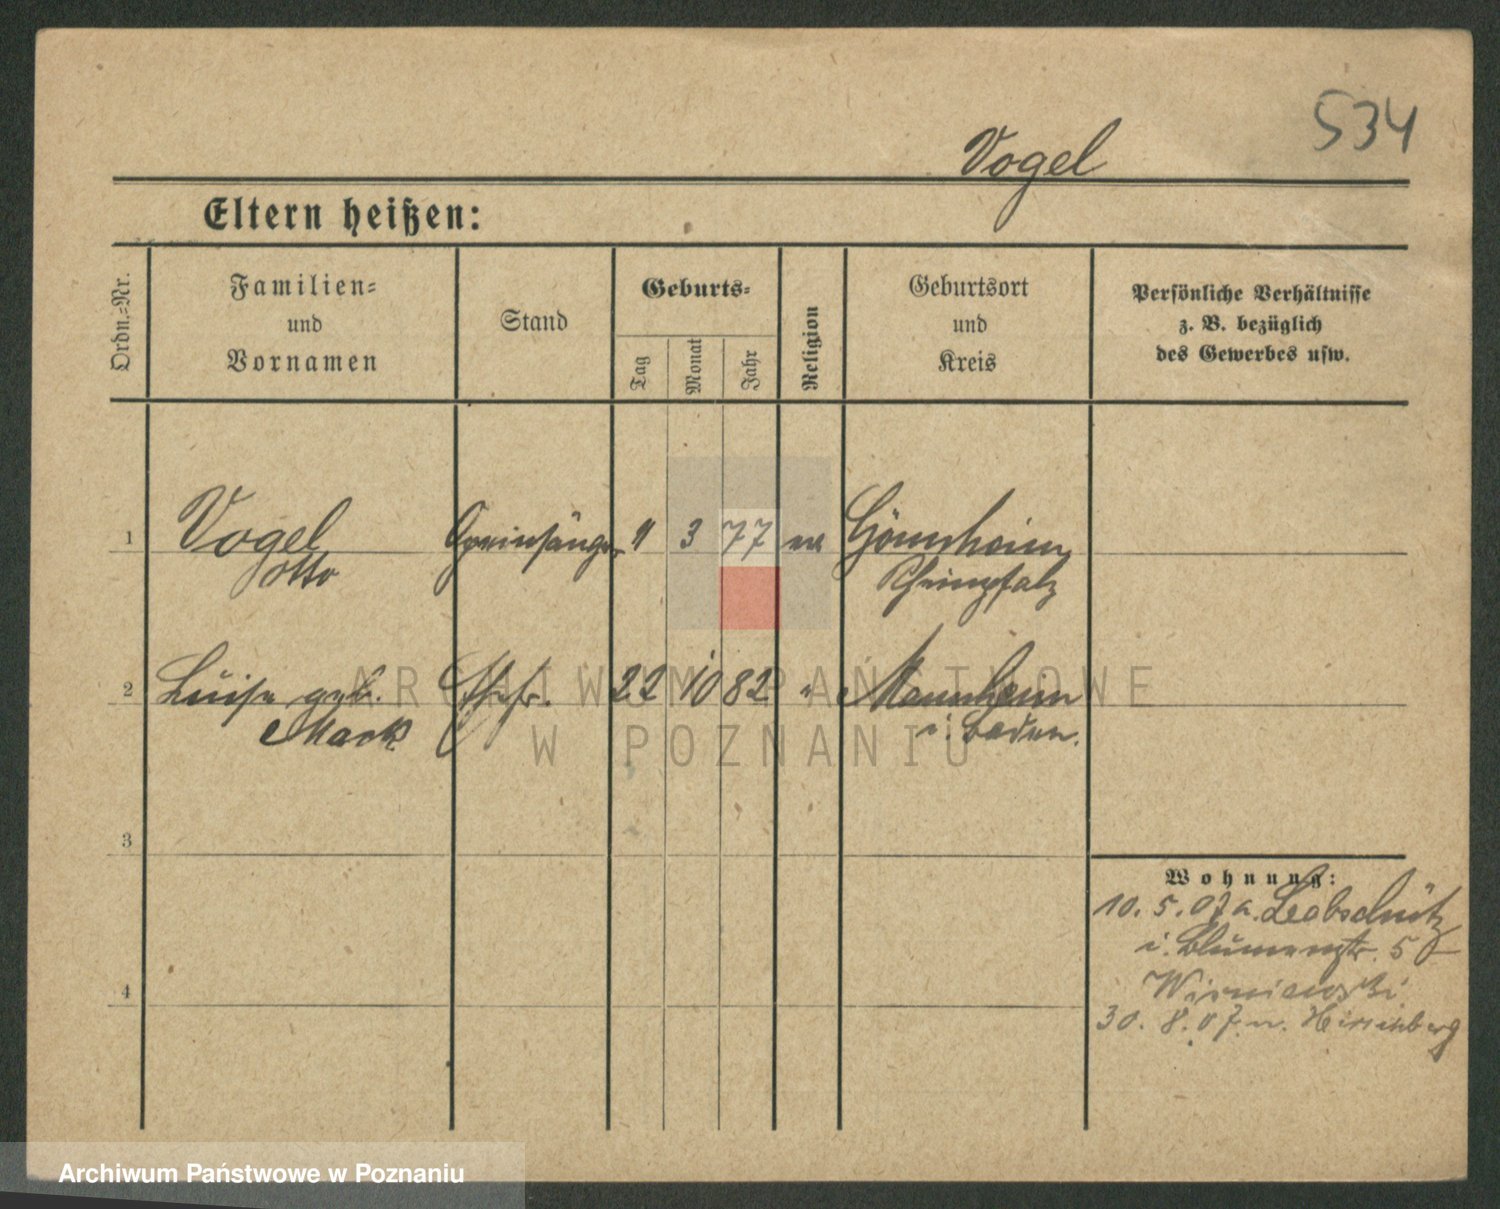 534
Vogel
Eltern heißen:
Ordn.-Nr.
Familien-
und
Vornamen
Stand
Geburts-
Tag
Monat
Jahr
Religion
Geburtsort
und
Kreis
Persönliche Verhältnisse
z. B. bezüglich
des Gewerbes usw.
1 Vogel Opernsänger 1 3 77 Gönnheim
Otto Rheinpfalz
2 Luise geb. Ehefr. 22 10 82 " Mannheim
Mack i. Baden.
3
4
Wohnung:
10. 5. 07 a. Leobschütz
i. Blumenstr. 5
Wisniewski
30. 8. 07 n. Hirschberg
ARCHIWUM PAŃSTWOWE
W POZNANIU
Archiwum Państwowe w Poznaniu